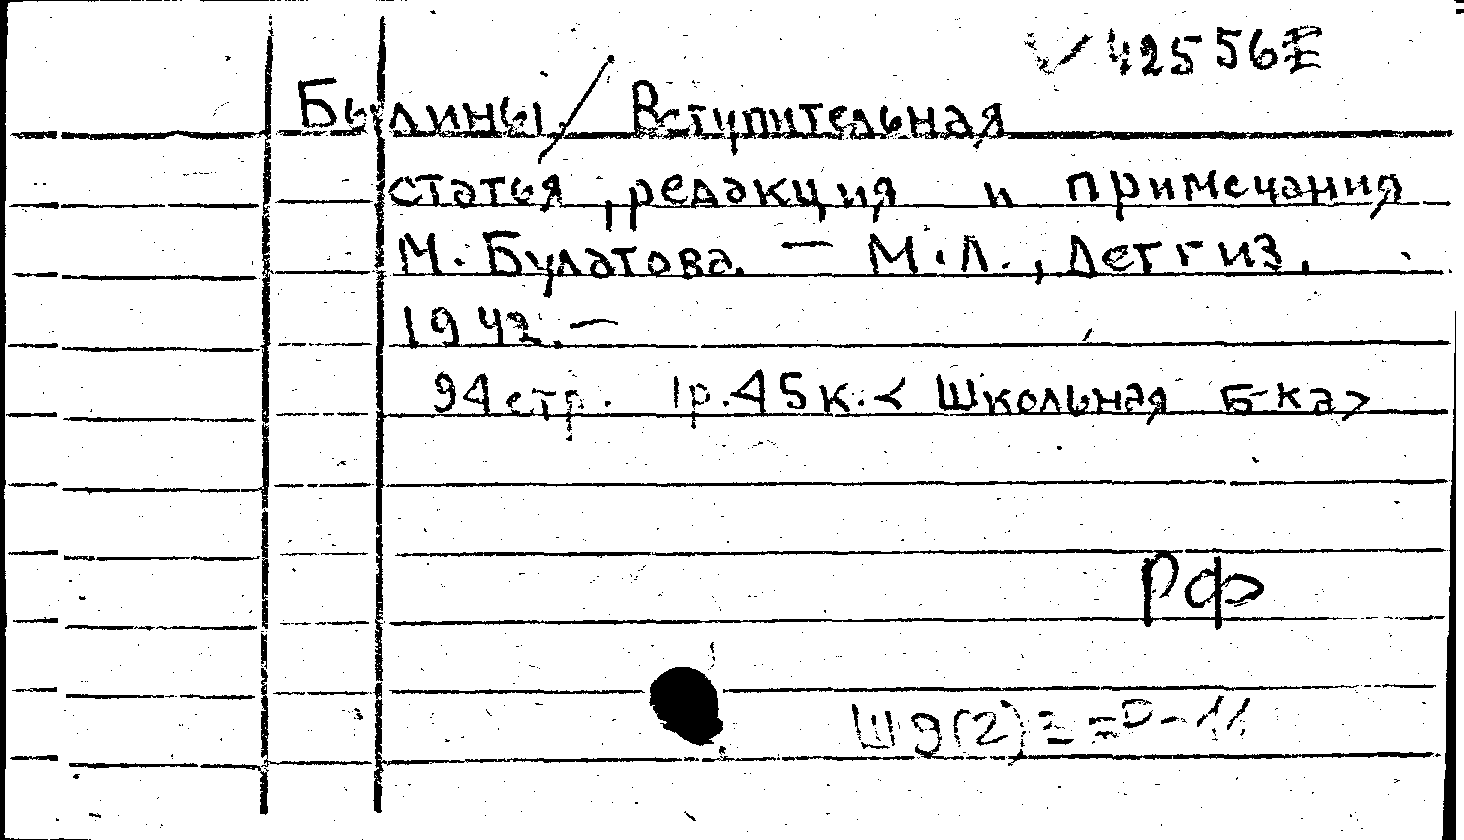 42556E
Былины / Вступительная
статья, редакция и примечания
М. Булатова. — М.Л., Детгиз,
1942. —
94 стр. 1р.45к. < Школьная б-ка>
РФ
Ш9(2)